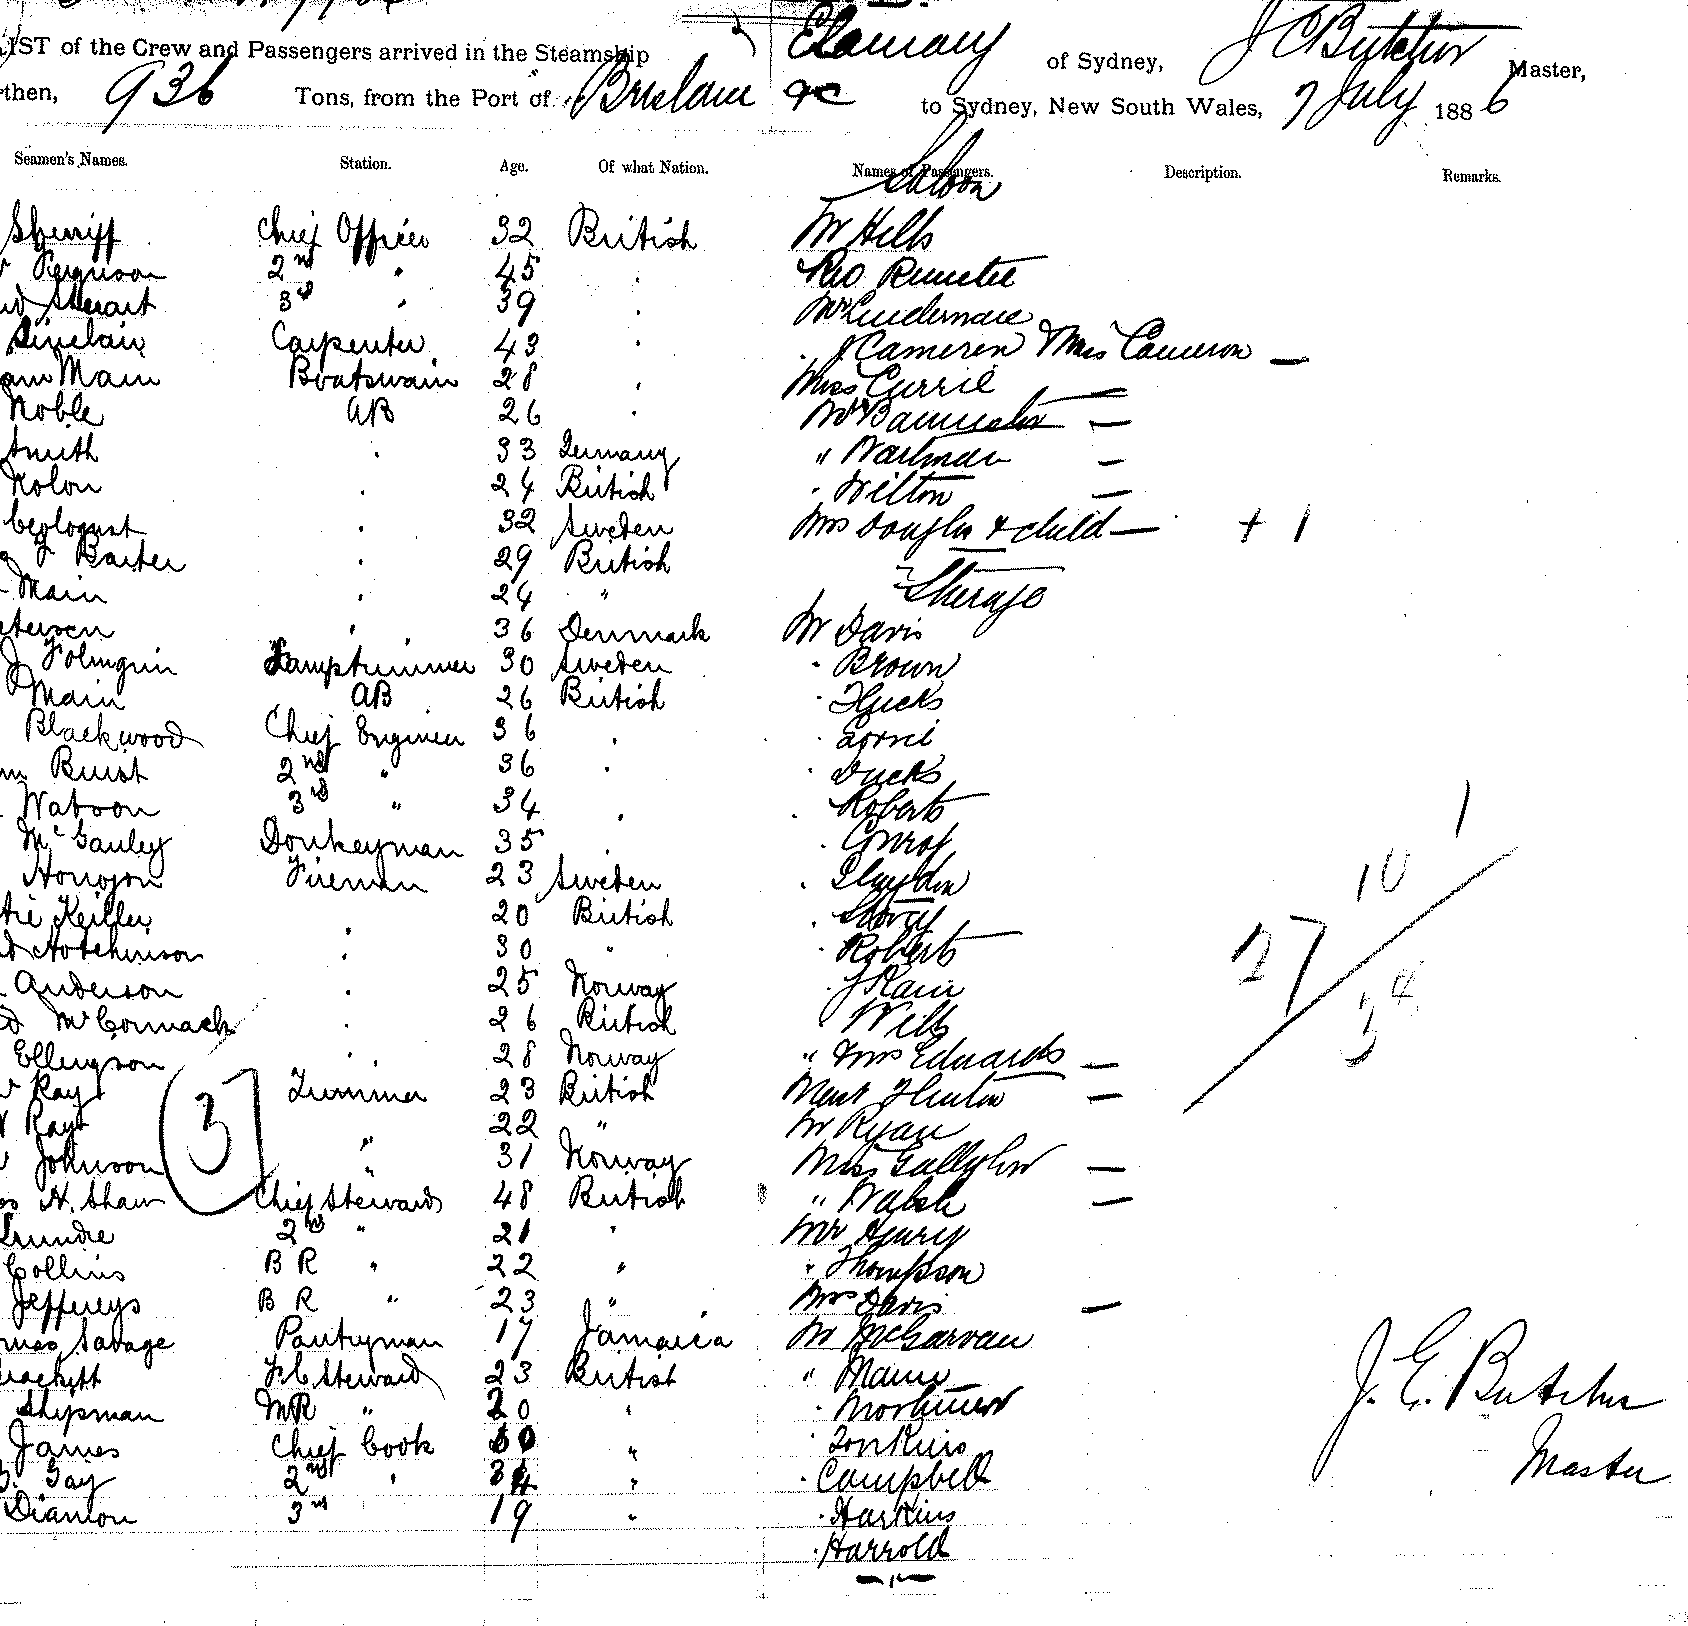 LIST of the Crew and Passengers arrived in the Steamship Elamang of Sydney, J C Butcher Master,
then, 936 Tons, from the Port of Brisbane &c to Sydney, New South Wales, 7 July 1886
Seamen's Names. Station. Age. Of what Nation. Names of Passengers. Description. Remarks.
Saloon
Sherriff Chief Officer 32 British Mr Hills
Ferguson 2nd " 45 "
Stewart 3rd " 39 " Mr Lindeman
Sinclair Carpenter 43 " J Cameron Miss Cameron —
Main Boatswain 28 " Miss Currie —
Noble AB 26 " Mr Bannister —
Smith " 33 Germany " Wartman —
Nolon " 24 British " Wilton —
" 32 Sweden Mrs Douglas & child — + 1
Barter " 29 British
Main " 24 " Steerage
Petersen " 36 Denmark Mr Davis
Lamptrimmer 30 Sweden " Brown
Main AB 26 British " Hucks
Blackwood Chief Engineer 36 "
Buist 2nd " 36 " " Ducks
Watson 3rd " 34 " " Roberts
McGauley Donkeyman 35 "
Fireman 23 Sweden
Keiller " 20 British " Storey
Hotchinson " 30 " " Roberts
Anderson " 25 Norway
McCormack " 26 British " Wills
Ellingson " 28 Norway " & Mrs Edwards —
Ray Trimmer 23 British —
Ray " 22 " Mr Ryan
Johnson " 31 Norway Miss —
H. Shaw Chief Steward 48 British " Walsh —
2nd " 21 " Mr Henry
Collins B R " 22 " " Thompson
Jeffreys B R " 23 " Mrs Davis —
Savage Pantryman 17 Jamaica Mr McGarvan
F.C Steward 23 British " Mann
Shipman MR " 20 " " Mortimer
James Chief Cook " " Tonkins
Gay 2nd " 34 " " Campbell
3rd 19 " " Harkins
" Harrold
3
1
10
27
34
J. E. Butcher
Master